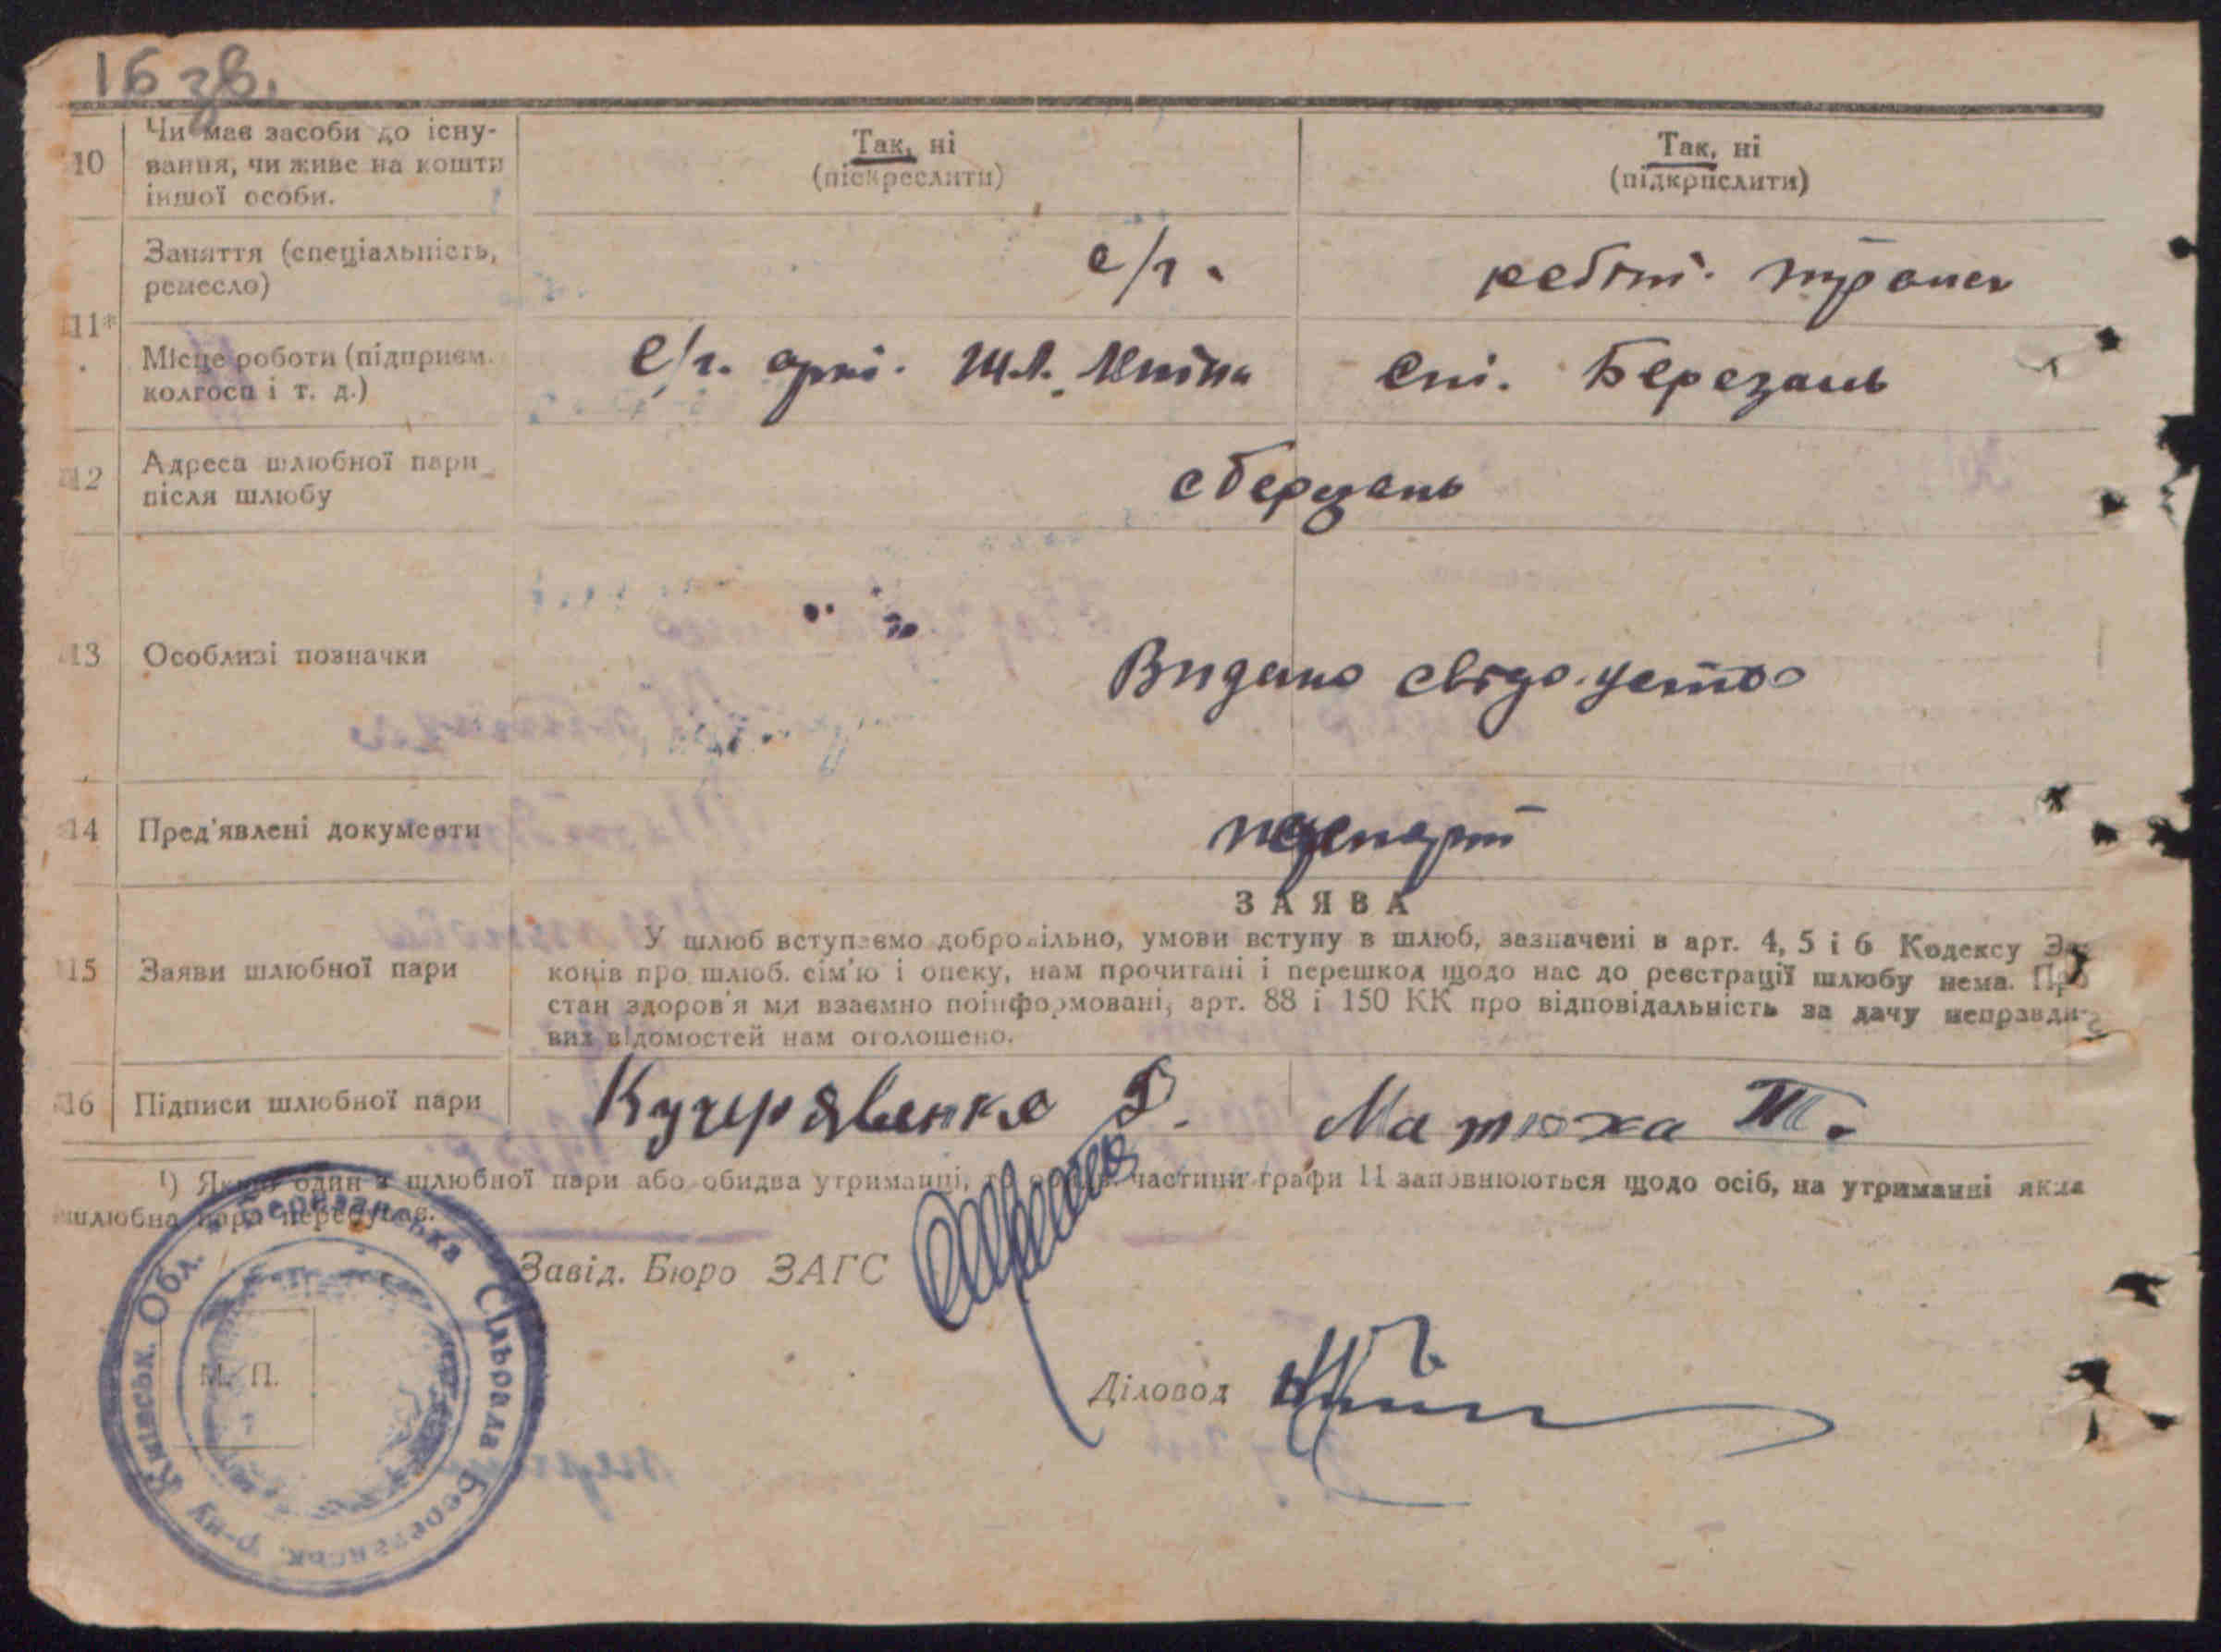 16 зв.
10
Чи має засоби до існу-
вання, чи живе на кошти
іншої особи.
Так, ні
(піскреслити)
Так, ні
(підкрпслити)
11*
Заняття (спеціальність,
ремесло)
с/г.
Місце роботи (підприєм.
колгосп і т. д.)
с/г.
Ст. Березань
12
Адреса шлюбної пари
після шлюбу
с Березань
13
Особливі позначки
Видано свідоцтво
14
Пред'явлені документи
паспорт
ЗАЯВА
15
Заяви шлюбної пари
У шлюб вступаємо добровільно, умови вступу в шлюб, зазначені в арт. 4, 5 і 6 Кодексу За-
конів про шлюб. сім'ю і опеку, нам прочитані і перешкод щодо нас до реєстрації шлюбу нема. Про
стан здоров'я ми взаємно поінформовані, арт. 88 і 150 КК про відповідальність за дачу неправди-
вих відомостей нам оголошено.
16
Підписи шлюбної пари
Кучерявенко В.
Матюха Т.
¹) Якщо один з шлюбної пари або обидва утриманці, то частини графи 11 заповнюються щодо осіб, на утриманні яких
шлюбна пара перебуває.
Завід. Бюро ЗАГС
Діловод
М. П.
Березанська Сільрада Березанськ. р-ну Київськ. Обл.